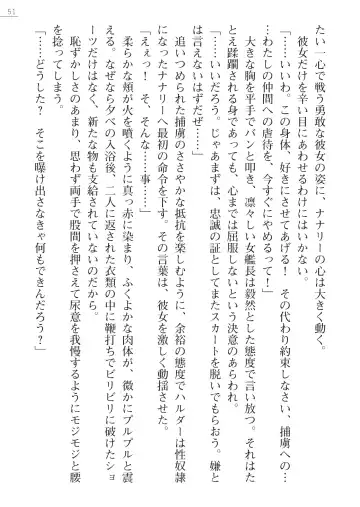 51
たい一心で戦う勇敢な彼女の姿に、ナナリーの心は大きく動く。
彼女だけを辛い目にあわせるわけにはいかない。
「……いいわ。この身体、好きにさせてあげる！　その代わり約束しなさい、捕虜への…
…わたしの仲間への虐待を、今すぐにやめるって！」
大きな胸を平手でバンと叩き、凛々しい女艦長は毅然とした態度で言い放つ。それはた
とえ蹂躙される身であっても、心までは屈服しないという決意のあらわれ。
「……いいだろう。じゃあまずは、忠誠の証としてまたスカートを脱いでもらおう。嫌と
は言えないはずだぜ……」
追いつめられた捕虜のささやかな抵抗を楽しむように、余裕の態度でハルダーは性奴隷
となったナナリーへ最初の命令を下す。その言葉は、彼女を激しく動揺させた。
「えぇっ！　そ、そんな……事……」
柔らかな頬が火を噴くように真っ赤に染まり、ふくよかな肉体が、微かにブルブルと震
える。なぜなら夕べの入浴後、二人に返された衣類の中に鞭打ちでビリビリに破けたショ
ーツだけはなく、新たな物も支給されていないのだから。
恥ずかしさのあまり、思わず両手で股間を押さえて尿意を我慢するようにモジモジと腰
を捻ってしまう。
「……どうした？　そこを曝け出さなきゃ何もできんだろう？」